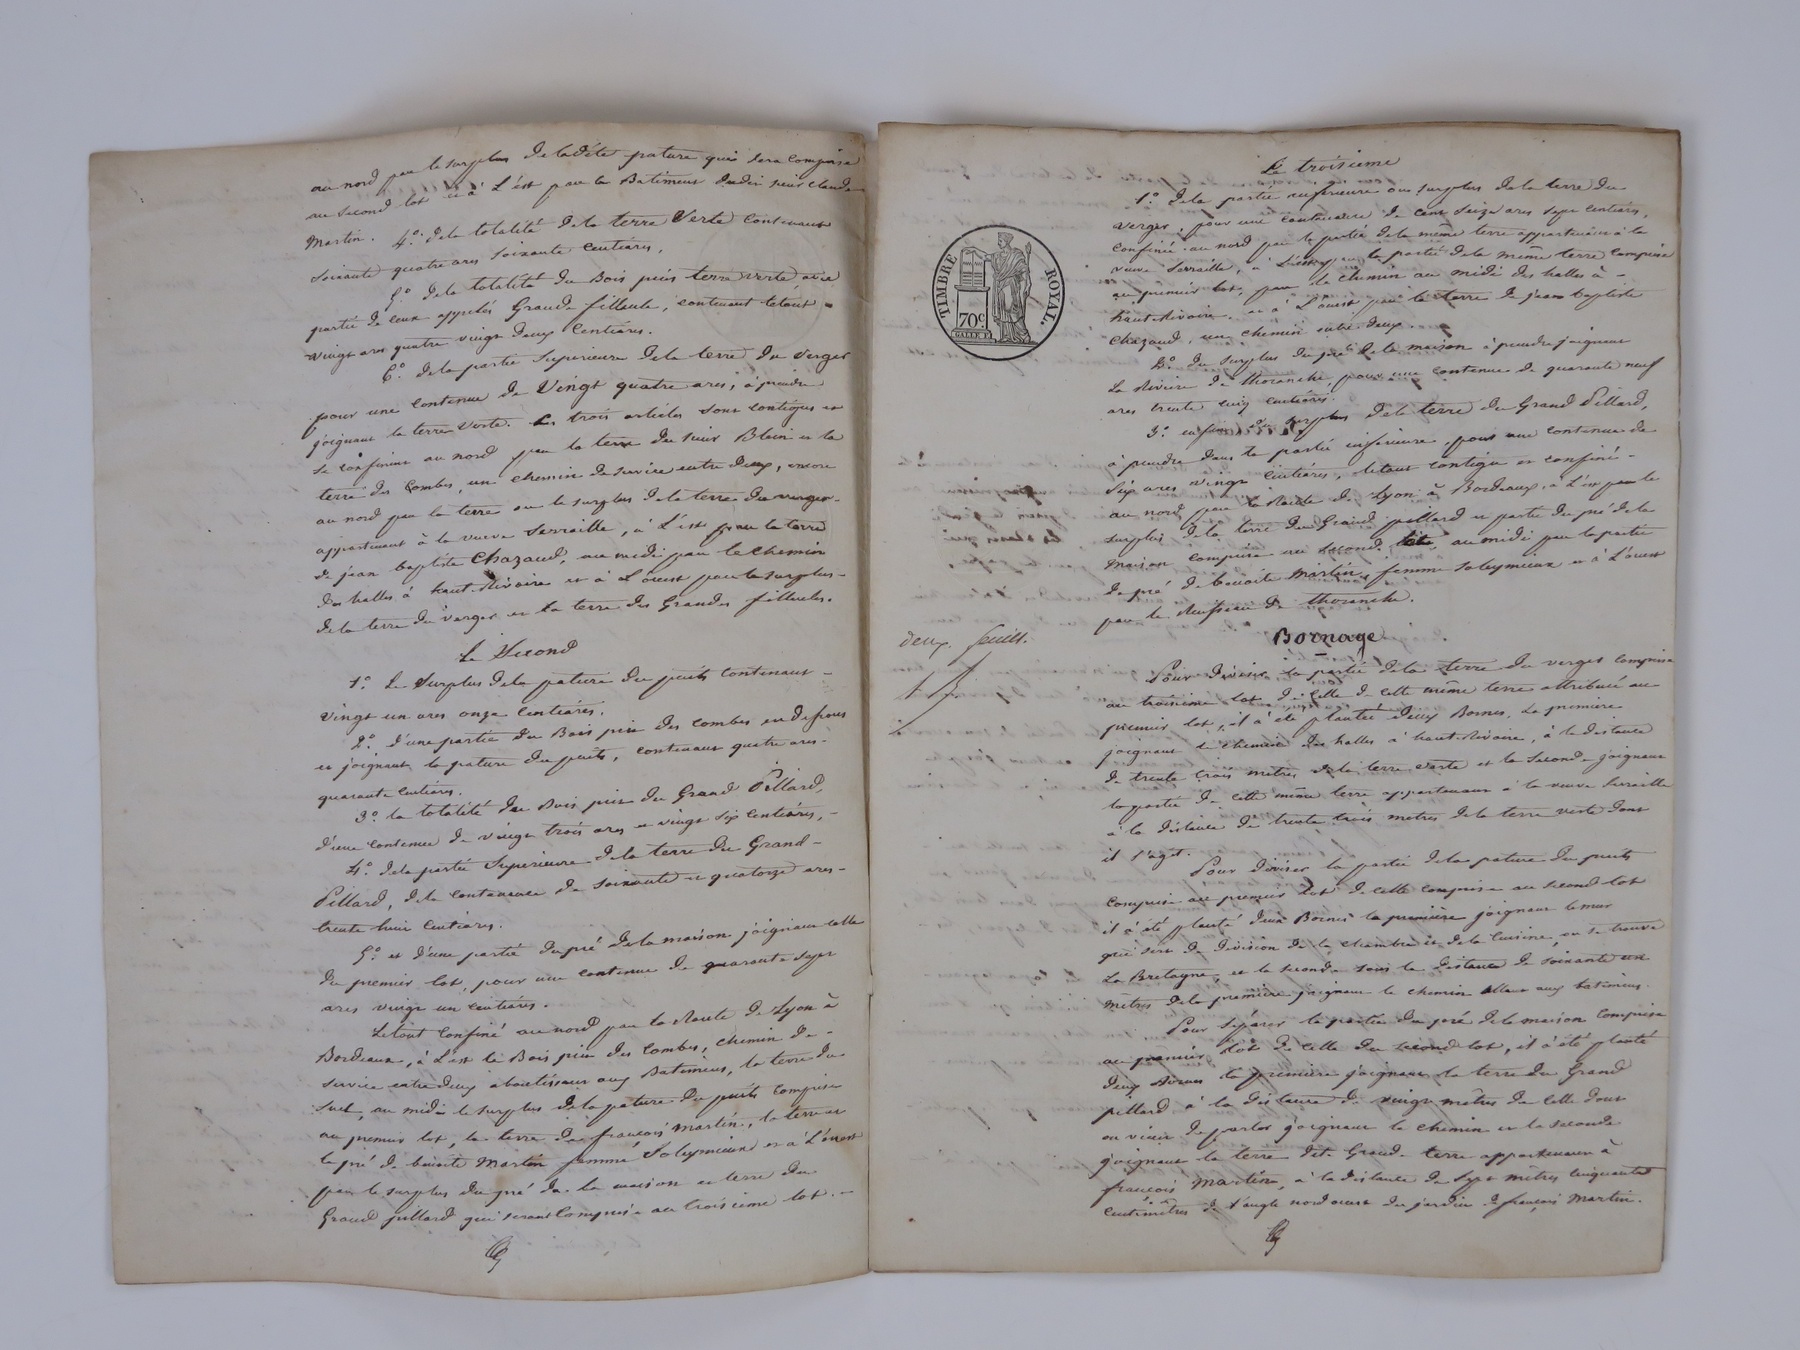 au nord par le surplus de ladite pature qui sera comprise
au second lot et à L'est par le Batiment dudit sieur claude
Martin. 4.° de la totalité de la terre Verte contenant
soixante quatre ares soixante centiares,
5.° de la totalité du Bois pins terre verte, avec
partie de ceux appelés Grande filleule, contenant letout
vingt ares quatre vingt deux Centiares.
6.° de la partie Superieure de la terre du verger
pour une contenue de Vingt quatre ares, à prendre
joignant la terre Verte. Les trois articles sont contigus et
se confinent au nord par la terre du sieur Blein et la
terre des Combes, un chemin de service entre deux, encore
au nord par la terre ou le surplus de la terre du verger
appartenant à la veuve Serraille, à L'est par la terre
de jean baptiste Chazaud, au midi par le chemin
des halles à haut-Rivoire et à L'ouest par le surplus
de la terre du verger et la terre des Grandes filleules.
Le Second
1.° Le Surplus de la pature du puits contenant
vingt un ares onze Centiares.
2.° d'une partie du Bois pin des Combes en
et joignant la pature du puits, contenant quatre ares
quarante Centiares.
3.° la totalité du Bois pin du Grand Pillard,
d'une contenue de vingt trois ares et vingt six Centiares,
4.° de la partie Superieure de la terre du Grand
Pillard, de la contenance de soixante et quatorze ares
trente huit Centiares.
5.° et d'une partie du pré de la maison joignant celle
du premier lot, pour une contenue de quarante sept
ares vingt un Centiares.
Letout confiné au nord par la Route de Lyon à
Bordeaux, à L'est le Bois pin des Combes, chemin de
service entre deux aboutissant aux Batiments, la terre du
Suel, au midi le surplus de la pature du puits comprise
au premier lot, la terre de françois Martin, la terre et
le pré de benoite Martin femme Soleymieux et à L'ouest
par le surplus du pré de la maison et terre du
Grand pillard qui seront Compris au troisième lot.
TIMBRE ROYAL.
70.c
deux. feuill.
Le troisieme
1.° De la partie inferieure ou surplus de la terre du
verger, pour une contenance de cent seize ares sept centiares,
confiné au nord par la partie de la même terre appartenant à la
veuve Serraille, à L'est par la partie de la même terre comprise
au premier lot, par le chemin au midi des halles à
haut-Rivoire. et à L'ouest par la terre de jean baptiste
Chazaud, un chemin entre deux.
2.° du surplus du pré de la maison à prendre joignant
La Riviere de thoranche, pour une contenue de quarante neuf
ares trente cinq centiares.
3.° enfin du surplus de la terre du Grand Pillard,
à prendre dans la partie inferieure pour une contenue de
Six ares vingt Centiares, letout contigu et confiné
au nord par la Route de Lyon à Bordeaux, à L'est par le
surplus de la terre du Grand pillard et partie du pré de la
Maison comprise au second lot, au midi par la partie
de pré de benoite Martin, femme soleymieux et à L'ouest
par le Ruisseau de thoranche.
Bornage
Pour diviser la partie de la terre du verger comprise
au troisieme lot de celle de cette même terre attribuée au
premier lot, il à été planté deux Bornes, La première
joignant le chemin des halles à haut-Rivoire, à la distance
de trente trois mètres de la terre verte et la Seconde joignant
la partie de cette même terre appartenant à la veuve Serraille
à la distance de trente trois metres de la terre verte dont
il s'agit.
Pour diviser la partie de la pature du puits
comprise au premier lot de celle comprise au second lot
il à été planté deux Bornes la première joignant le mur
qui sert de division de la chambre et de la Cuisine, où se trouve
La Bretagne, et la seconde sous la distance de soixante un
mètres de la première joignant le chemin allant aux batimens.
Pour séparer la partie du pré de la maison comprise
au premier lot de celle du second lot, il à été planté
deux Bornes la première joignant la terre du Grand
pillard à la distance de vingt mètres de celle dont
on vient de parler joignant le chemin et la seconde
joignant la terre dite Grande terre appartenant à
françois Martin, à la distance de Sept mètres cinquante
Centimètres de l'angle nord ouest du jardin de françois Martin.